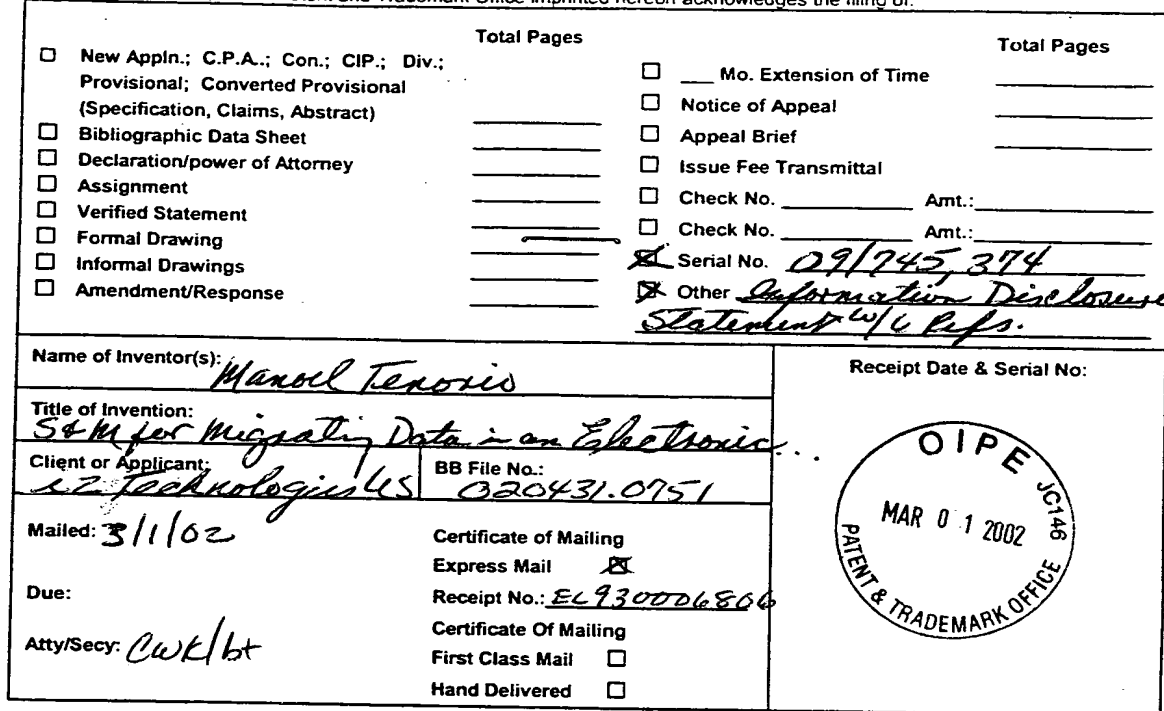 and Trademark Office imprinted hereon acknowledges the filing of:
Total Pages
New Appln.; C.P.A..; Con.; CIP.; Div.;
Provisional; Converted Provisional
(Specification, Claims, Abstract)
Bibliographic Data Sheet
Declaration/power of Attorney
Assignment
Verified Statement
Formal Drawing
Informal Drawings
Amendment/Response
Total Pages
___ Mo. Extension of Time
Notice of Appeal
Appeal Brief
Issue Fee Transmittal
Check No. __________ Amt.: __________
Check No. __________ Amt.: __________
Serial No. 09/745,374
Other Information Disclosure
Statement w/6 Refs.
Name of Inventor(s): Manoel Tenorio
Title of Invention:
S&M for Migrating Data in an Electronic...
Client or Applicant:
i2 Technologies US
BB File No.:
020431.0751
Mailed: 3/1/02
Due:
Atty/Secy: CWK/bt
Certificate of Mailing
Express Mail
Receipt No.: EL930006806
Certificate Of Mailing
First Class Mail
Hand Delivered
Receipt Date & Serial No:
OIPE JC146
MAR 01 2002
PATENT & TRADEMARK OFFICE